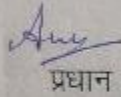 प्रधान